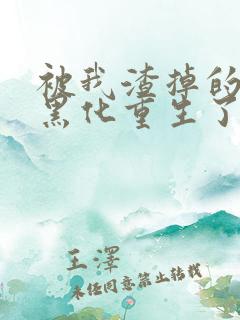 被我渣掉的
黑化重生了
王澤
未经同意禁止转载